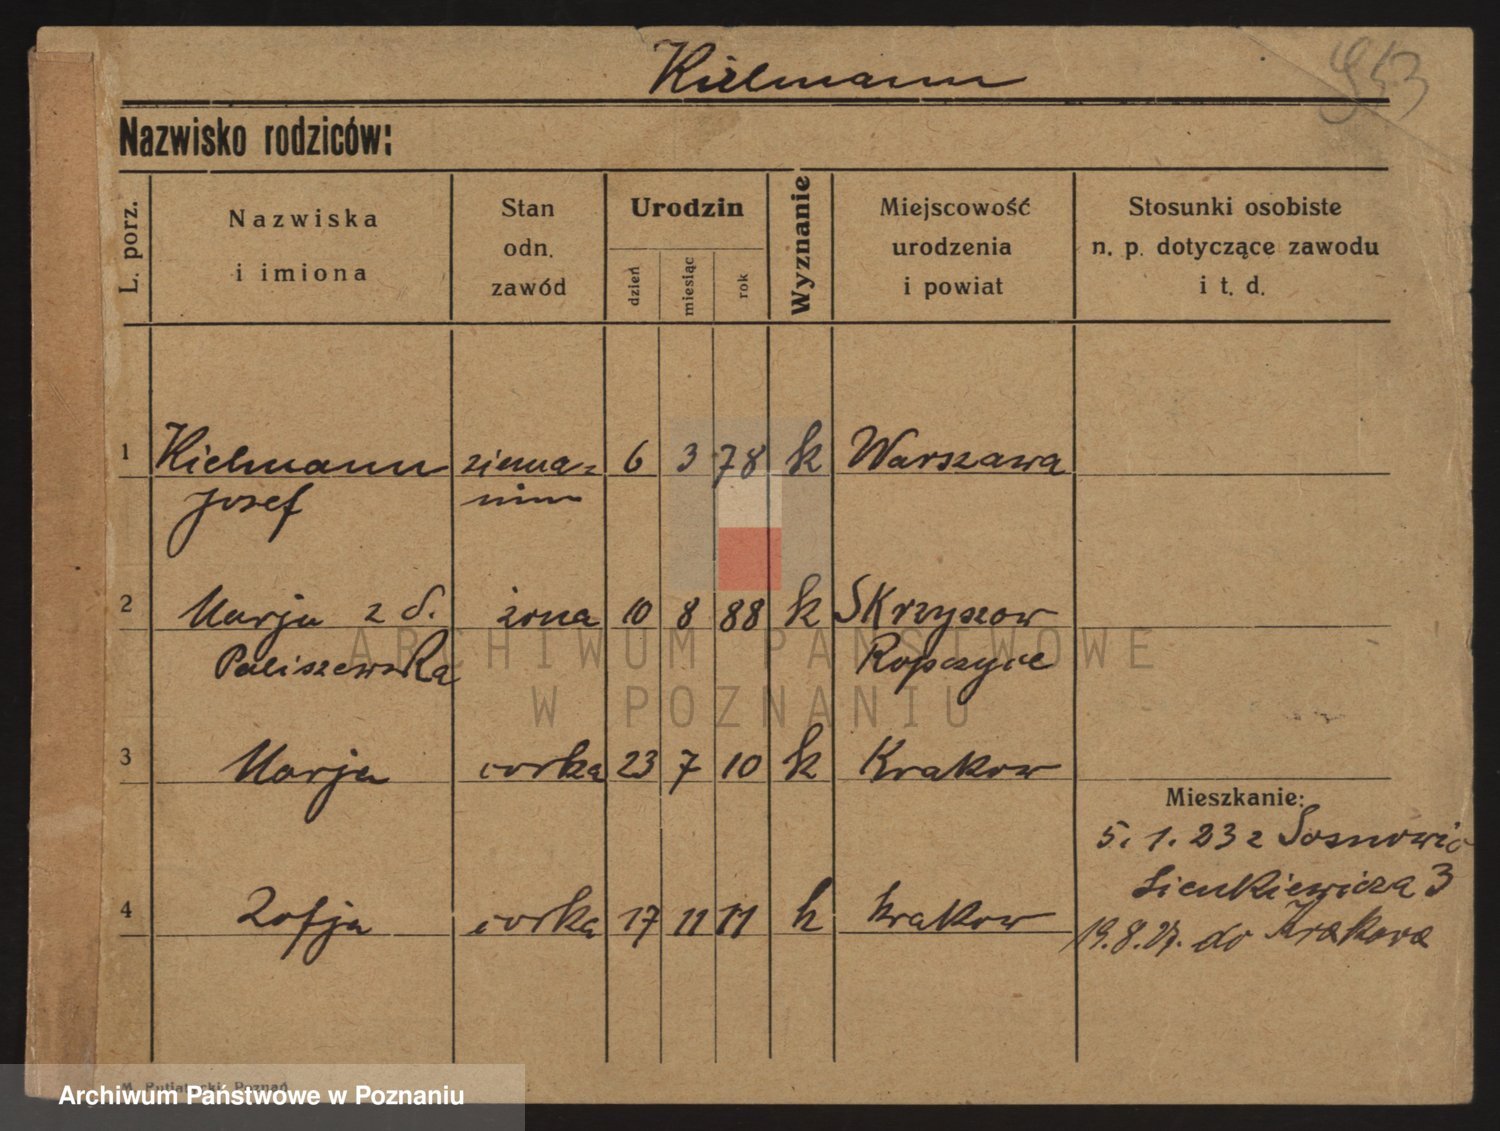 Kielmann
953
Nazwisko rodziców:
L. porz.
Nazwiska
i imiona
Stan
odn.
zawód
Urodzin
dzień
miesiąc
rok
Wyznanie
Miejscowość
urodzenia
i powiat
Stosunki osobiste
n. p. dotyczące zawodu
i t. d.
1 Kielmann ziemia- 6 3 78 k Warszawa
Josef nin
2 Marja z d. żona 10 8 88 k Skrzyszow
Paliszewska Ropczyce
3 Marja corka 23 7 10 k Krakow
Mieszkanie:
5. 1. 23 z Sosnowic
Sienkiewicza 3
4 Zofja corka 17 11 11 k Krakow
19. 8. 27. do Krakowa
ARCHIWUM PAŃSTWOWE
W POZNANIU
Poznań
Archiwum Państwowe w Poznaniu